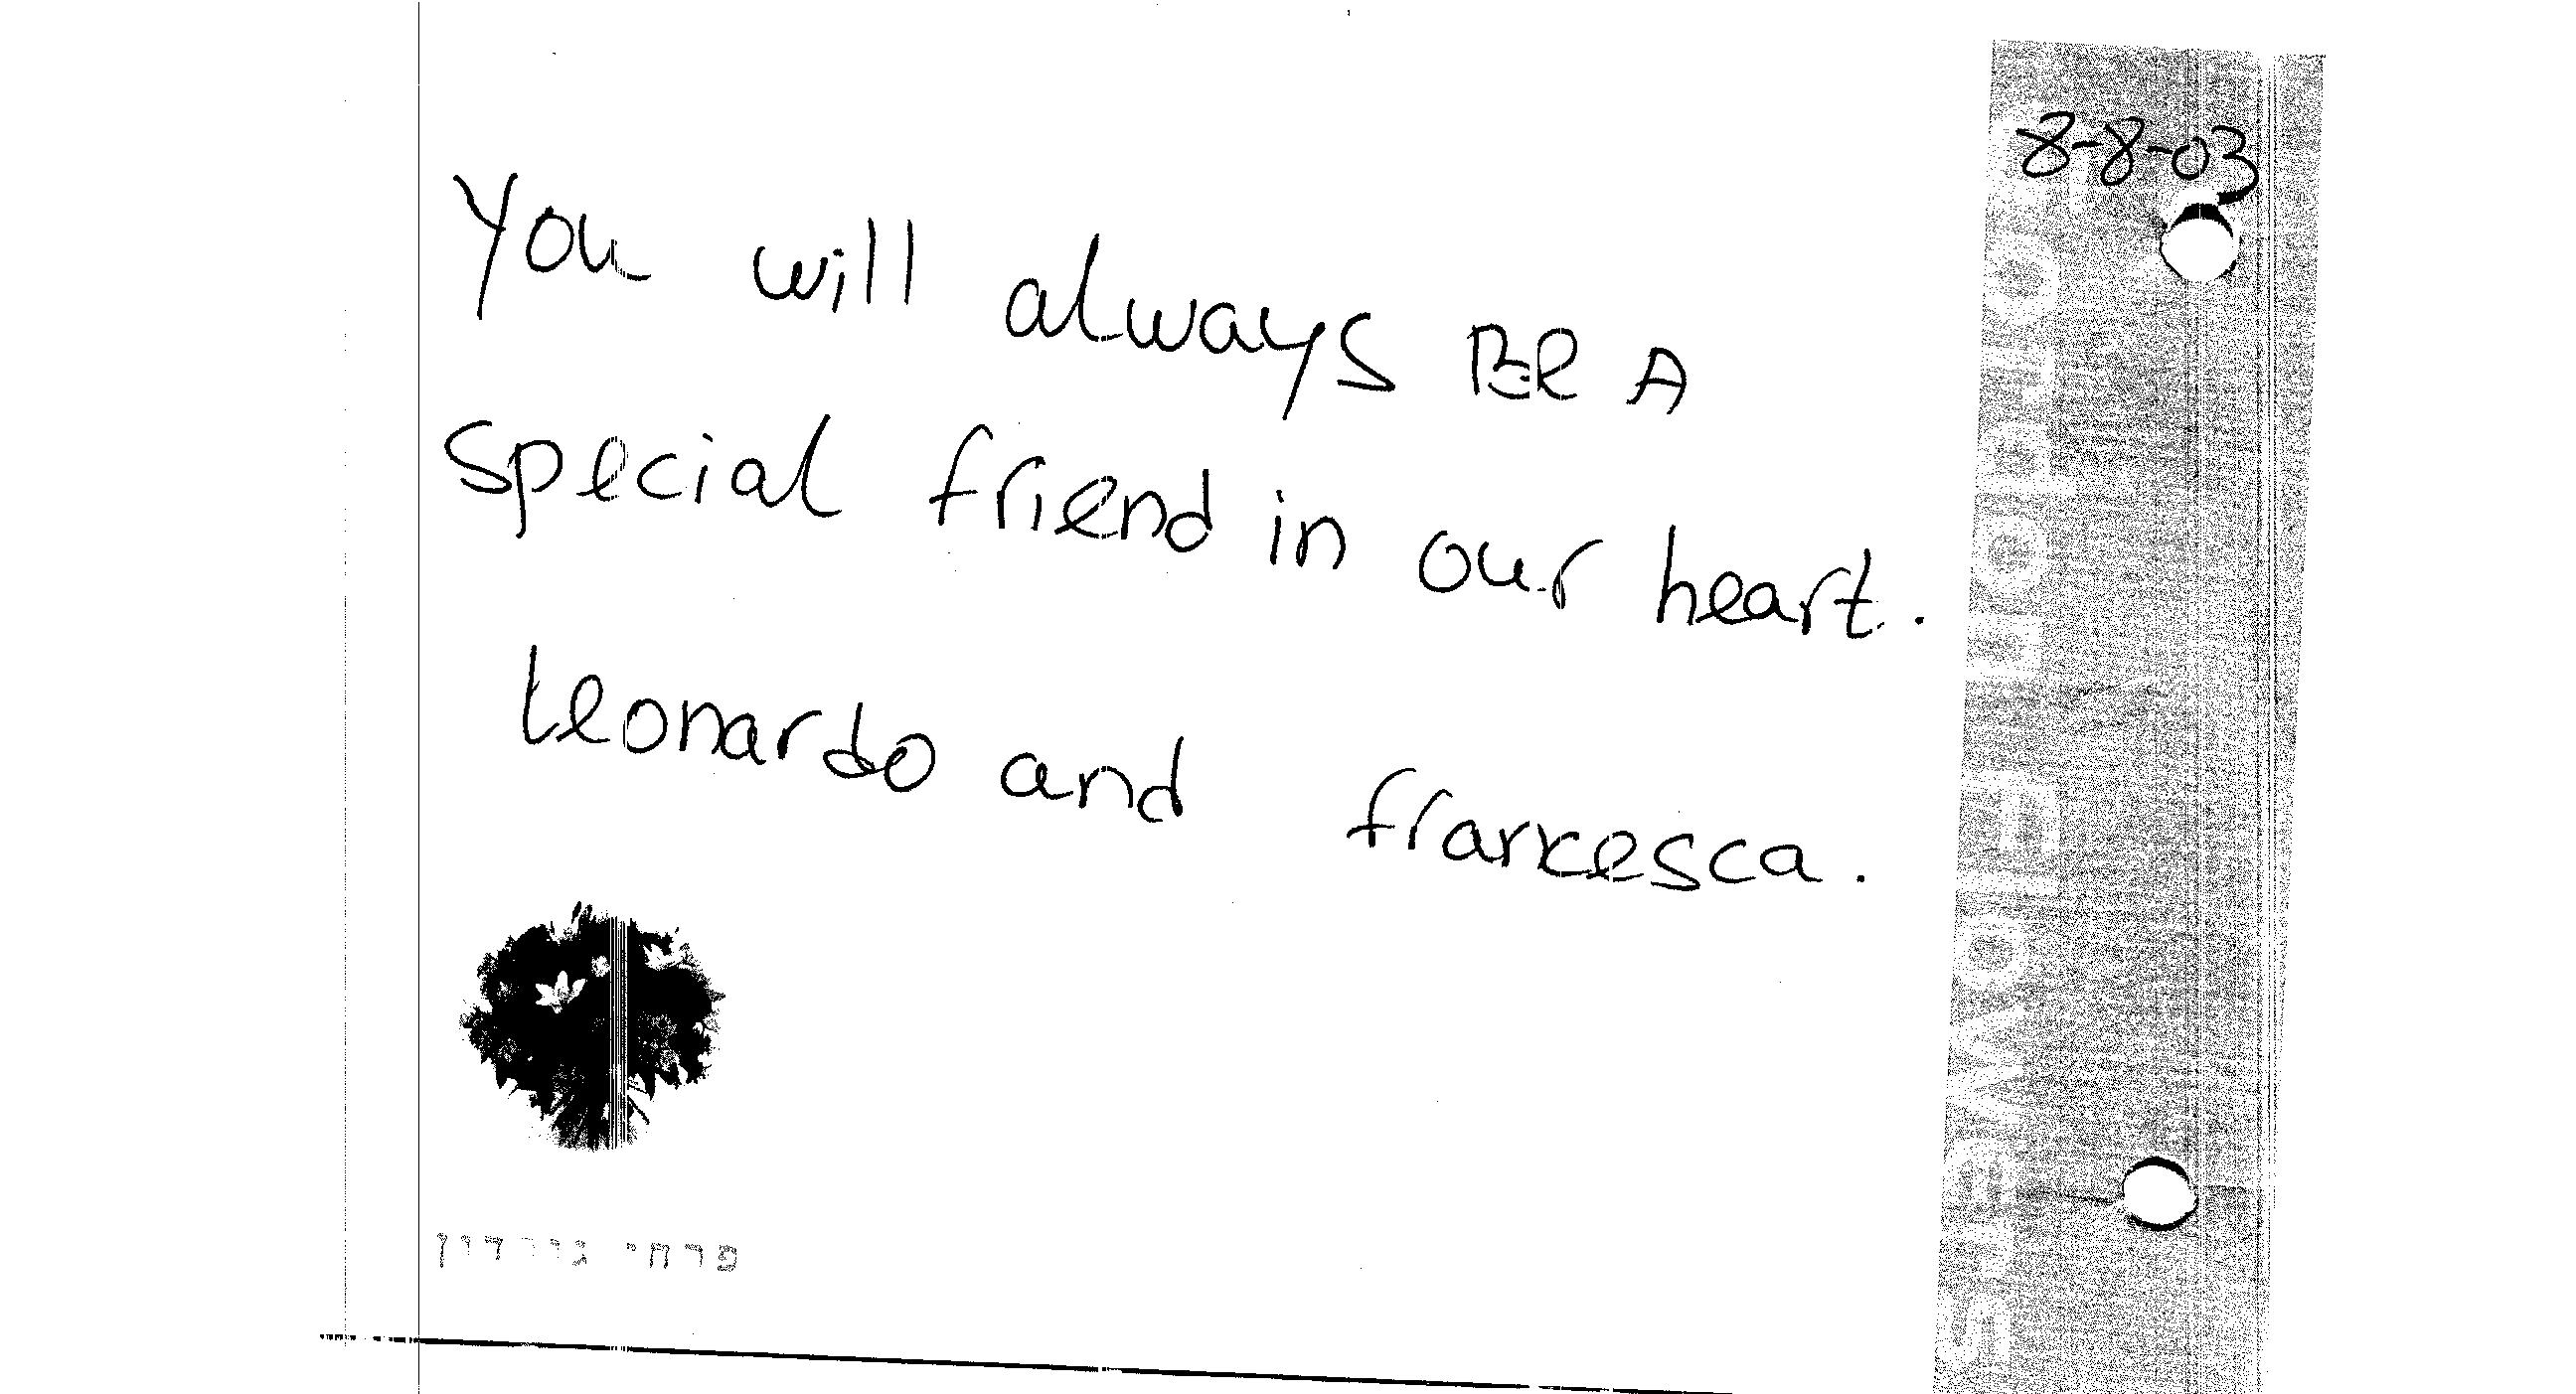 8-8-03
You will always BE A
special friend in our heart.
Leonardo and francesca.
פרחי גורדון